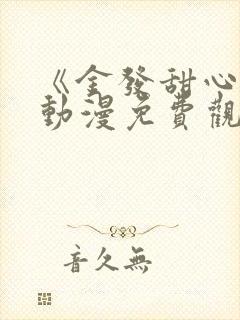 《金發甜心
動漫免費觀
音久無